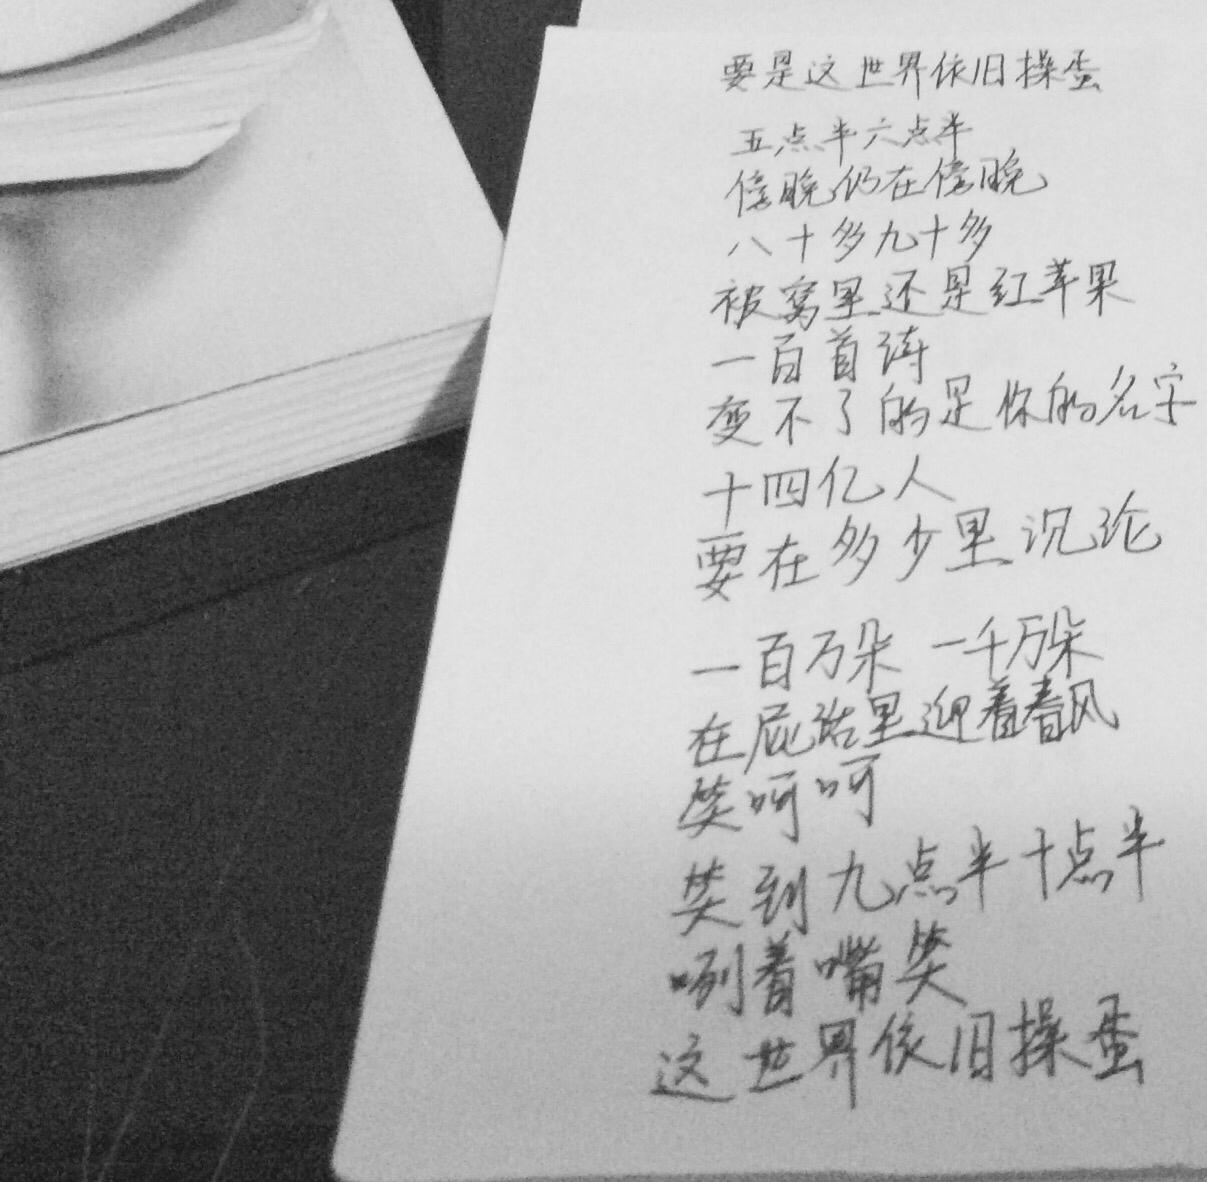 要是这世界依旧操蛋
五点半六点半
傍晚仍在傍晚
八十多九十多
被窝里还是红苹果
一百首诗
变不了的是你的名字
十四亿人
要在多少里沉沦
一百万朵 一千万朵
在屁话里迎着春风
笑呵呵
笑到九点半十点半
咧着嘴笑
这世界依旧操蛋